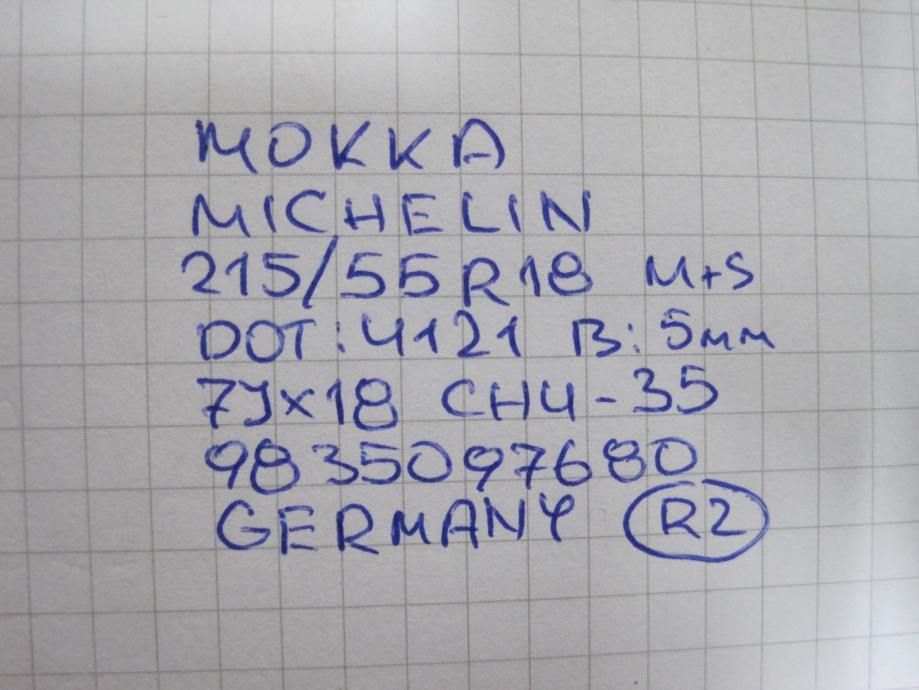 MOKKA
MICHELIN
215/55R18 M+S
DOT:4121 B: 5mm
7Jx18 CH4-35
9835097680
GERMANY R2